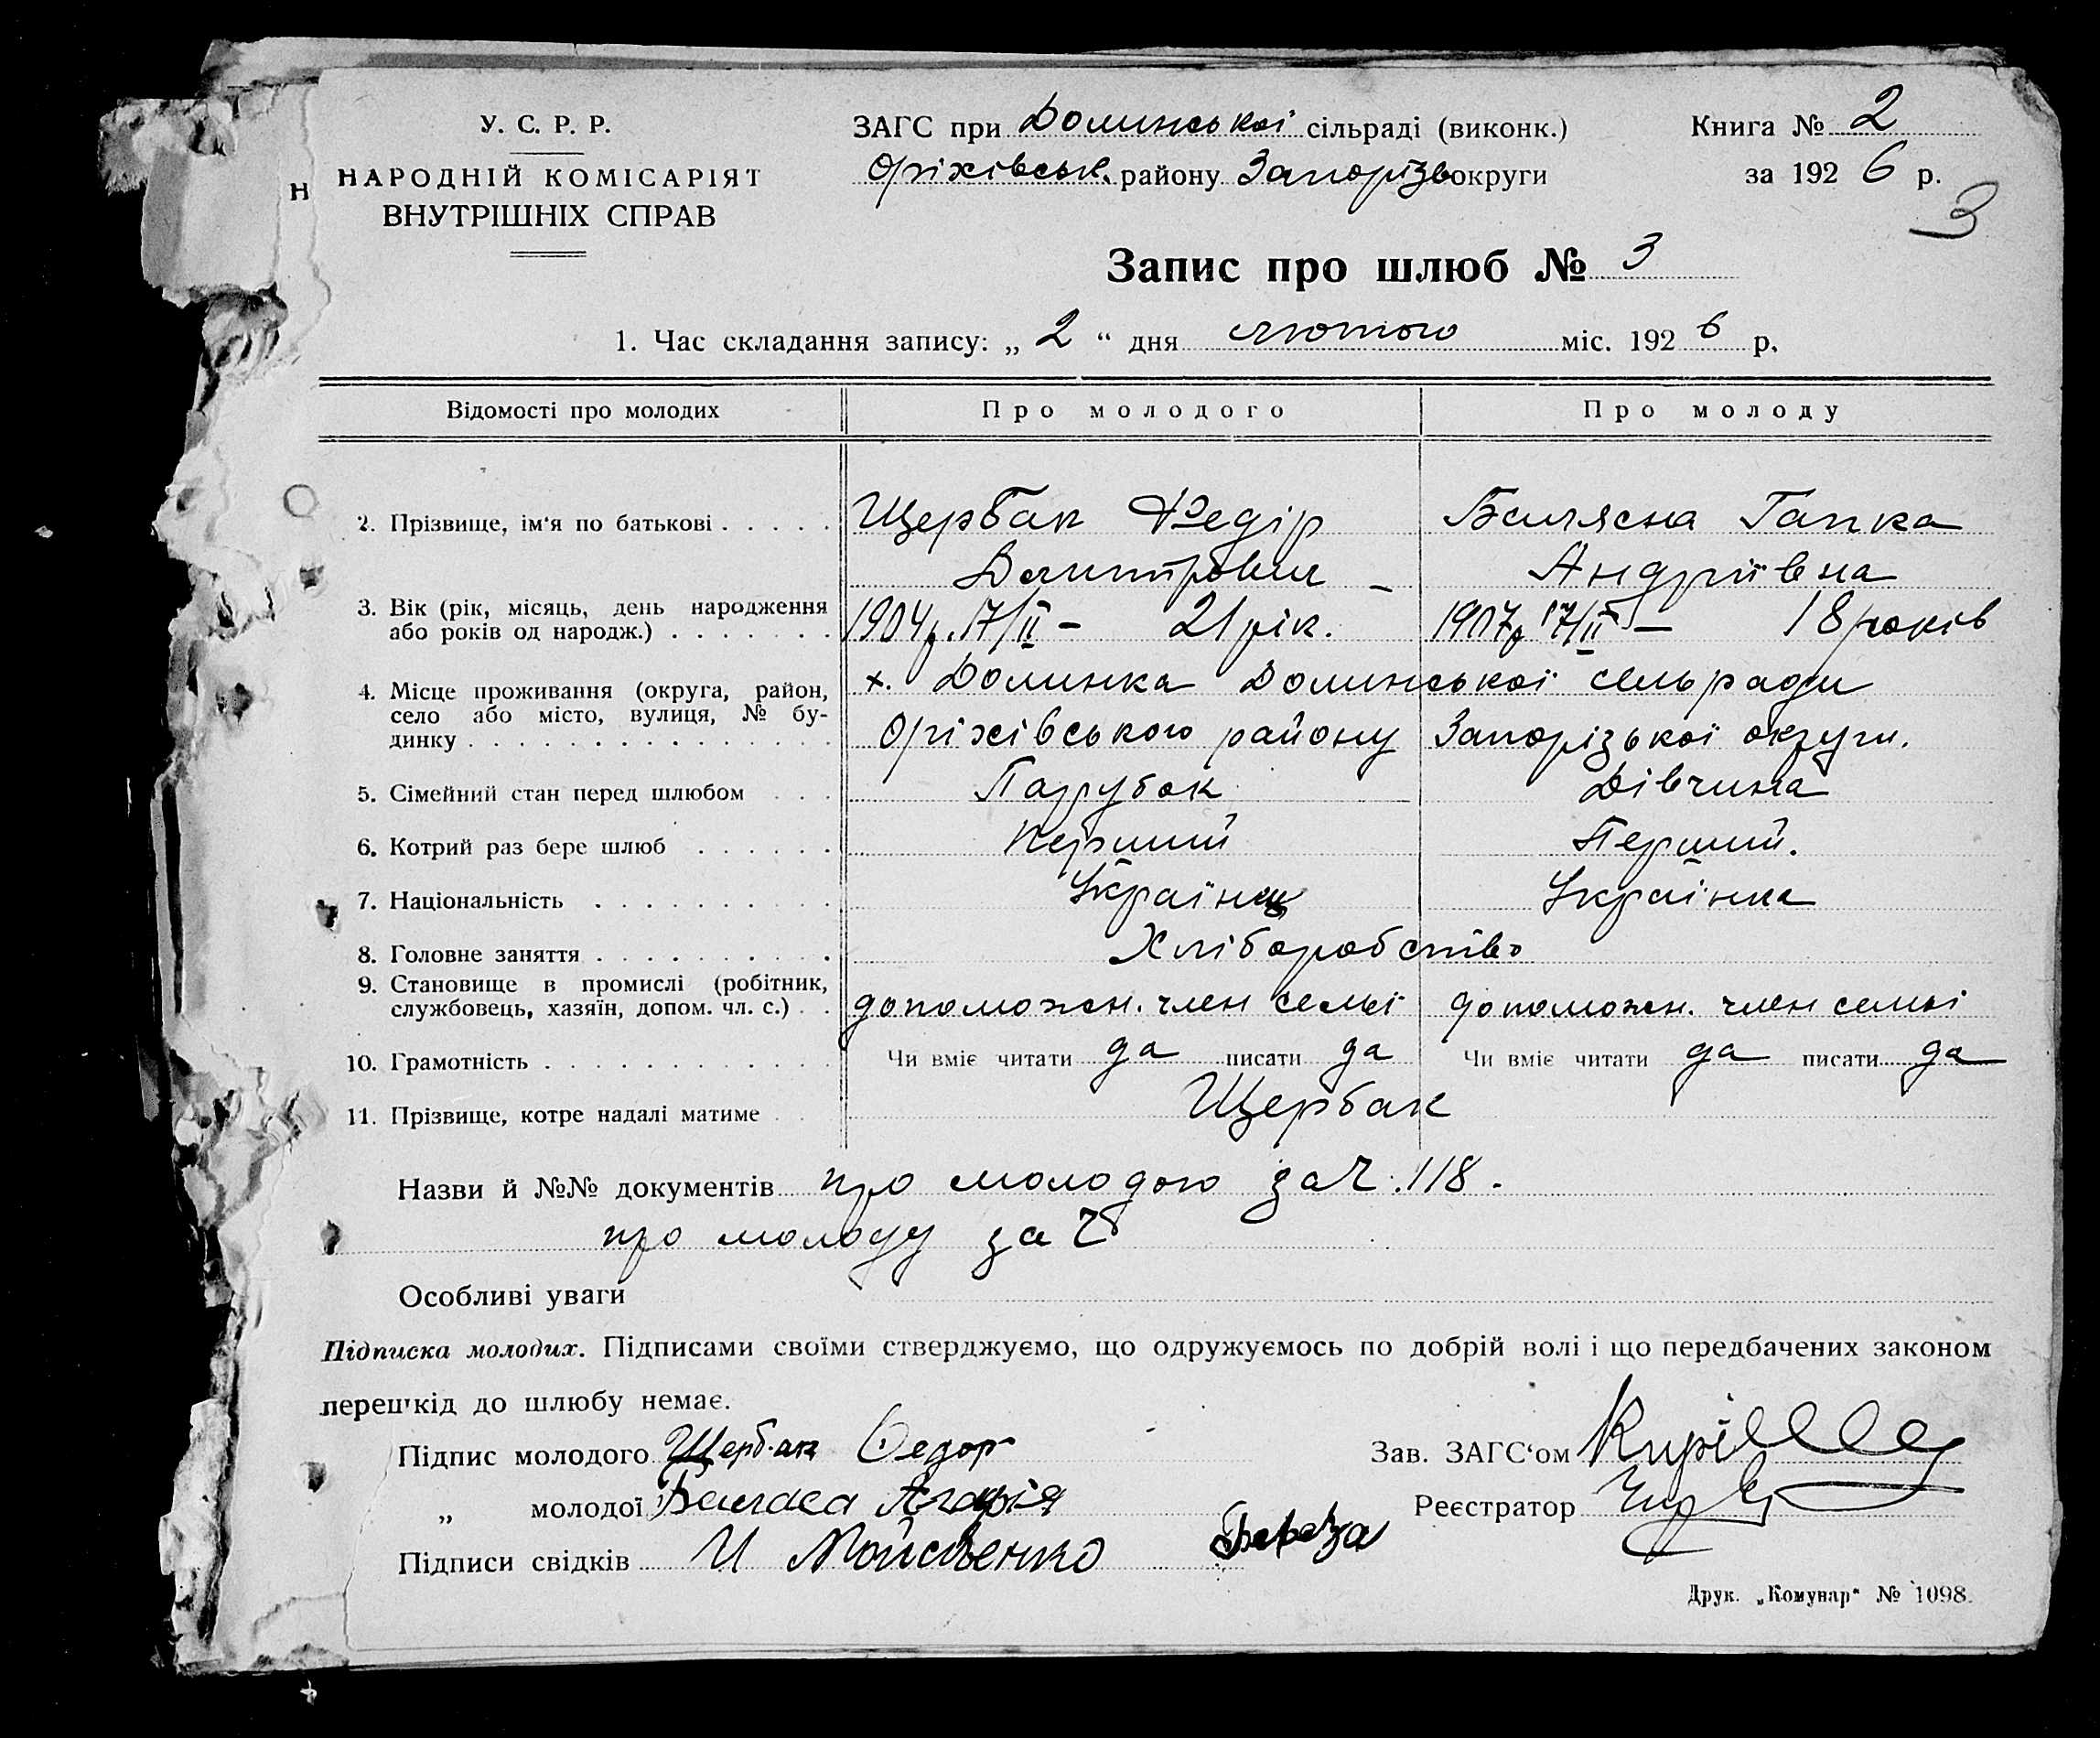 У. С. Р. Р.
НАРОДНІЙ КОМІСАРІЯТ
ВНУТРІШНІХ СПРАВ
Н
ЗАГС при Долинської сільраді (виконк.)
Оріхівськ. району Запорізь округи
Книга № 2
за 1926 р.
3
Запис про шлюб № 3
1. Час складання запису: „ 2 “ дня лютого міс. 1926 р.
Відомості про молодих Про молодого Про молоду
2. Прізвище, ім'я по батькові . . . . . Щербак Федір Балясна Гапка
Дмитрович – Андріївна
3. Вік (рік, місяць, день народження
або років од народж.) . . . . . . . 1904р. 17/II – 21 рік. 1907р 17/II – 18 років
4. Місце проживання (округа, район, х. Долинка Долинської сельради
село або місто, вулиця, № бу-
динку . . . . . . . . . . . . . . . Оріхівського району Запорізької округи.
5. Сімейний стан перед шлюбом . . . Парубок Дівчина
6. Котрий раз бере шлюб . . . . . . Перший Перший.
7. Національність . . . . . . . . . . Українц Українка
8. Головне заняття . . . . . . . . . . Хліборобство
9. Становище в промислі (робітник,
службовець, хазяїн, допом. чл. с.) . . допоможн. член семьї допоможн. член семьі
10. Грамотність . . . . . . . . . . . . Чи вміє читати да писати да Чи вміє читати да писати да
11. Прізвище, котре надалі матиме . . Щербак
Назви й №№ документів про молодого за Ч. 118.
про молоду за Ч
Особливі уваги
Підписка молодих. Підписами своїми стверджуємо, що одружуємось по добрій волі і що передбачених законом
перешкід до шлюбу немає.
Підпис молодого Щербак Федор
„ молодої
Підписи свідків И Мойсеенко Береза
Зав. ЗАГС‘ом
Реєстратор
Друк. „Комунар“ № 1098.